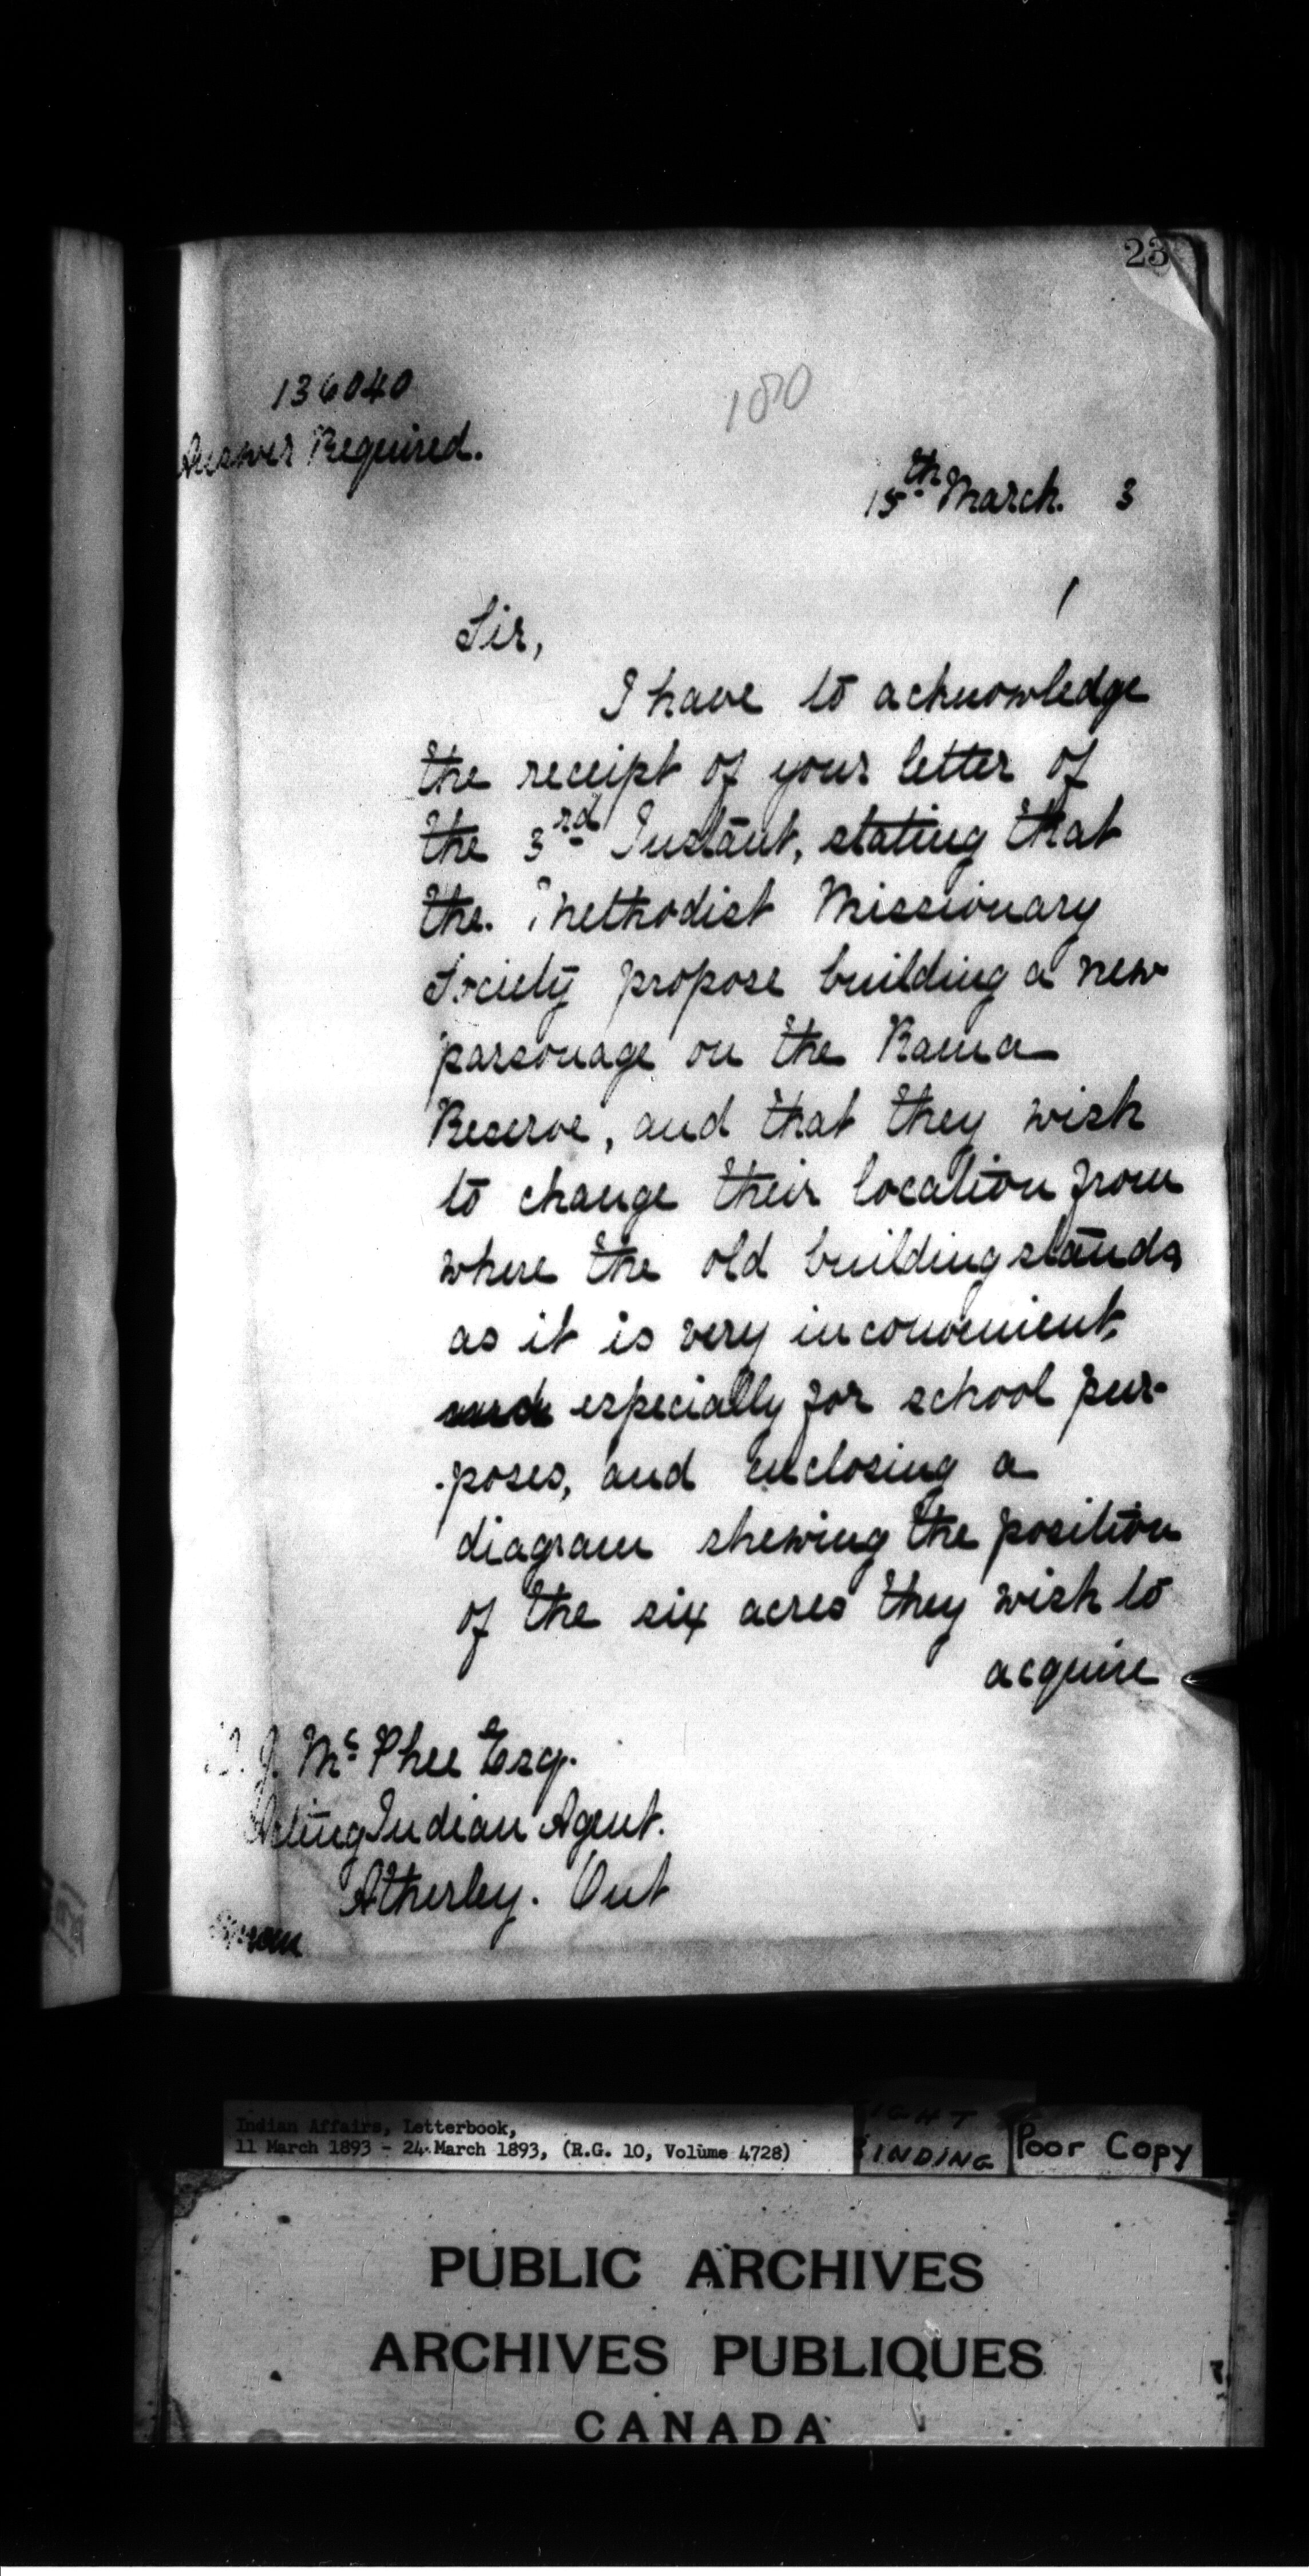 23
136040
180
Answer Required.
15th March. 3
Sir,
I have to acknowledge
the receipt of your letter of
the 3rd Instant, stating that
the. Methodist Missionary
Society propose building a new
parsonage on the Rama
Reserve, and that they wish
to change their location from
where the old building stands
as it is very inconvenient,
especially for school pur-
-poses, and enclosing a
diagram shewing the position
of the six acres they wish to
acquire
J. Mc Phee Esq.
Acting Indian Agent.
Atherley. Ont
Indian Affairs, Letterbook,
11 March 1893 - 24 March 1893, (R.G. 10, Volume 4728)
IGHT
INDING
Poor Copy
PUBLIC ARCHIVES
ARCHIVES PUBLIQUES
CANADA